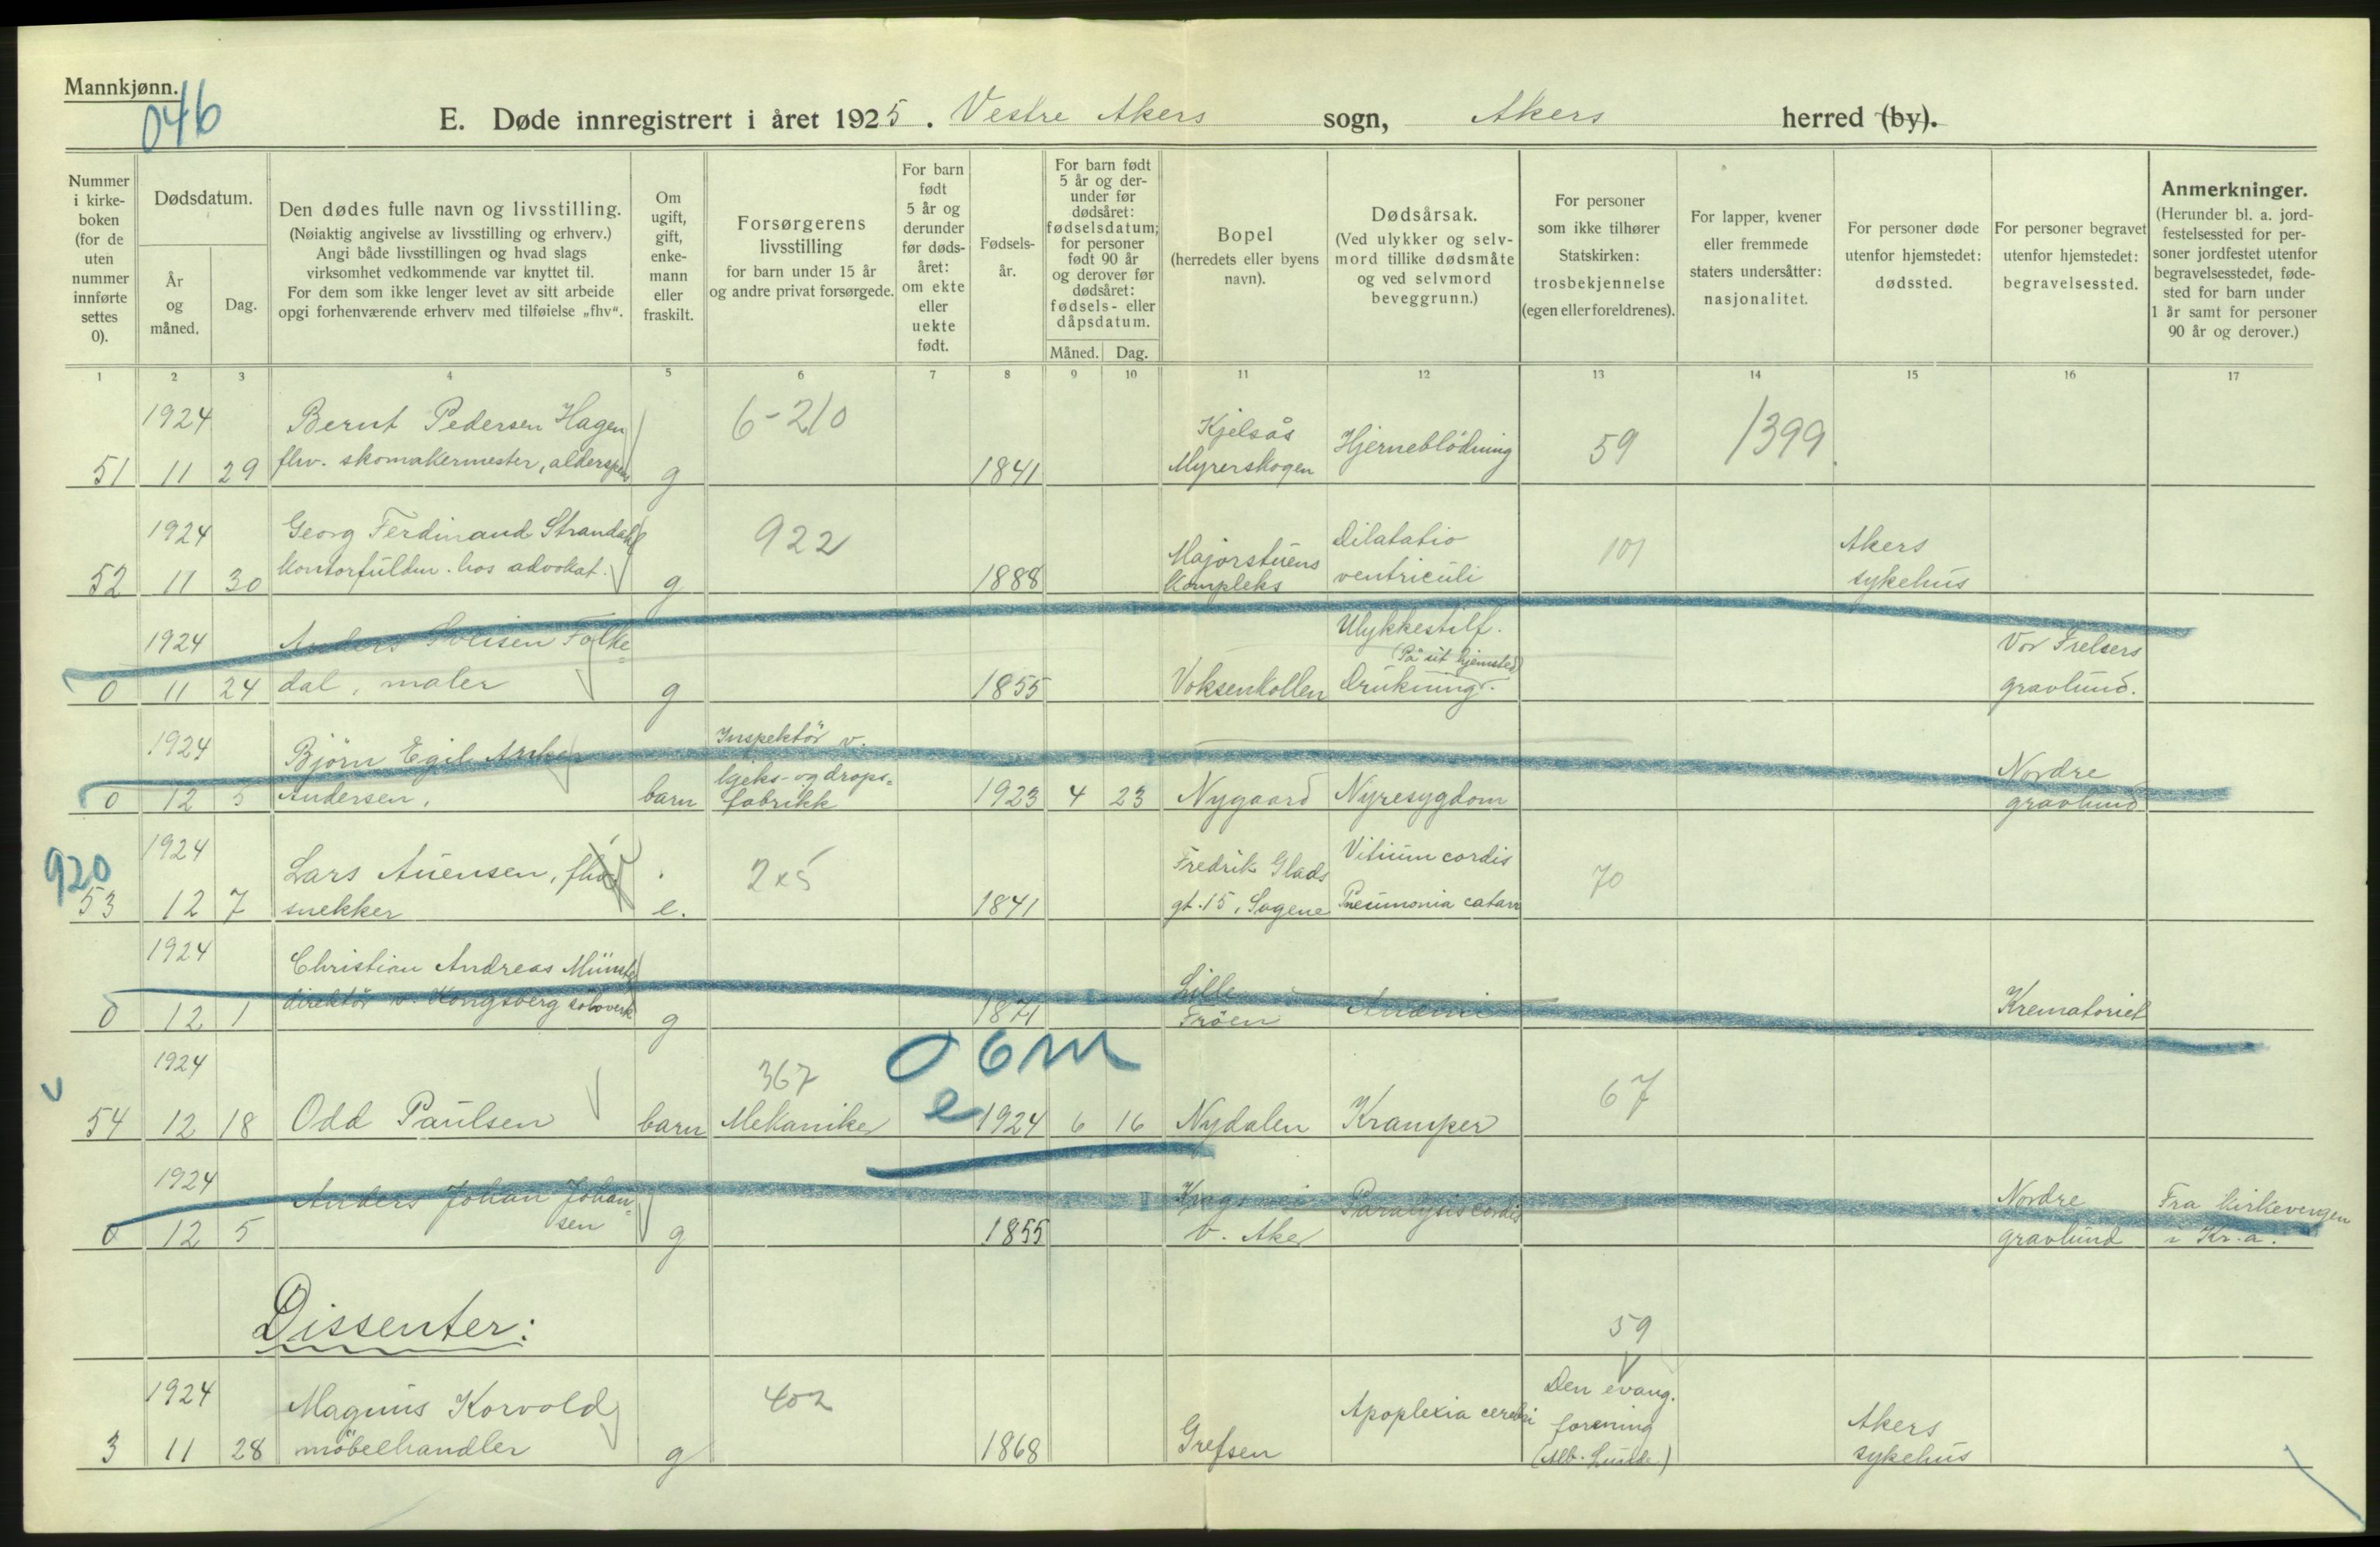 Mannkjønn.
046
E. Døde innregistrert i året 1925. Vestre Akers sogn, Akers herred (by).
Nummer i kirke-boken (for de uten nummer innførte settes 0).
Dødsdatum.
År og måned.
Dag.
Den dødes fulle navn og livsstilling.
(Nøiaktig angivelse av livsstilling og erhverv.)
Angi både livsstillingen og hvad slags
virksomhet vedkommende var knyttet til.
For dem som ikke lenger levet av sitt arbeide
opgi forhenværende erhverv med tilføielse „fhv“.
Om ugift, gift, enke-mann eller fraskilt.
Forsørgerens livsstilling
for barn under 15 år
og andre privat forsørgede.
For barn født 5 år og derunder før døds-året: om ekte eller uekte født.
Fødsels-år.
For barn født 5 år og der-under før dødsåret: fødselsdatum; for personer født 90 år og derover før dødsåret: fødsels- eller dåpsdatum.
Måned. Dag.
Bopel
(herredets eller byens navn).
Dødsårsak.
(Ved ulykker og selv-mord tillike dødsmåte og ved selvmord beveggrunn.)
For personer som ikke tilhører Statskirken: trosbekjennelse (egen eller foreldrenes).
For lapper, kvener eller fremmede staters undersåtter: nasjonalitet.
For personer døde utenfor hjemstedet: dødssted.
For personer begravet utenfor hjemstedet: begravelsessted.
Anmerkninger.
(Herunder bl. a. jord-festelsessted for per-soner jordfestet utenfor begravelsesstedet, føde-sted for barn under 1 år samt for personer 90 år og derover.)
1 2 3 4 5 6 7 8 9 10 11 12 13 14 15 16 17
1924 Bernt Pedersen Hagen 6-210 Kjelsås Hjerneblödning 59 1399
51 11 29 fhv. skomakermester, alderspens g 1841 Myrerskogen
1924 Georg Ferdinand Strandahl 922 Majorstuens Dilatatio 101 Akers
52 11 30 kontorfuldm. hos advokat. g 1888 kompleks ventriculi sykehus
1924 Anders Folke= Ulykkestilf. Vor Frelsers
(På sit hjemsted)
0 11 24 dal, maler g 1855 Voksenkollen Drukning. gravlund.
1924 Björn Egil Inspektör v. Nordre
kjeks- og drops=
0 12 5 Andersen. barn fabrikk 1923 4 23 Nygaard Nyresygdom gravlund
920
1924 Lars Auensen, fhv. 2x5 Fredrik Glads Vitium cordis 70
53 12 7 snekker e. 1841 gt. 15, Sagene Pneumonia catarr
1924 Christian Andreas Münster Lille Krematoriet
0 12 1 direktör v. Kongsberg sölvverk g 1871 Fröen Anæmi
06m
1924 367 67
54 12 18 Odd Paulsen barn Mekaniker e 1924 6 16 Nydalen Kramper
1924 Anders Johan Johan= Paralysis cordis Nordre Fra kirkevergen
0 12 5 sen g 1855 V. Aker gravlund i Kr.a.
Dissenter: 59
1924 Magnus Korvold 402 Apoplexia cerebri Den evang. Akers
forening
3 11 28 möbelhandler g 1868 Grefsen (Alb. Lunde.) sykehus